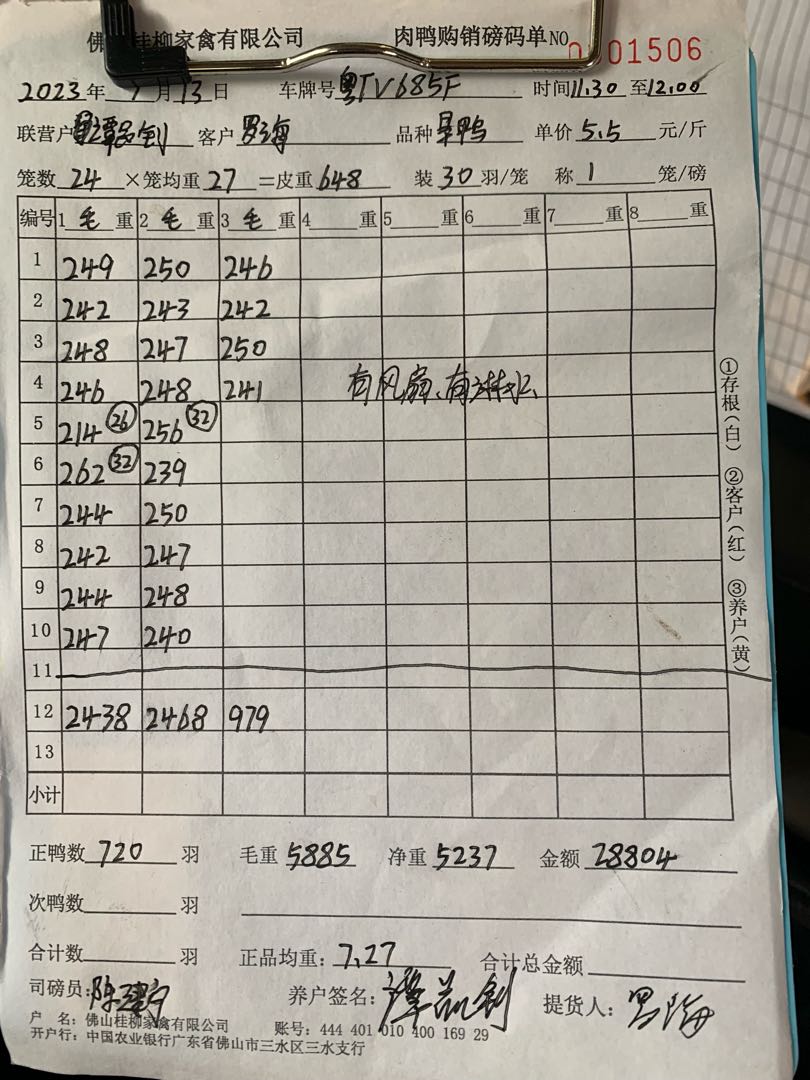 佛山桂柳家禽有限公司 肉鸭购销磅码单 NO 0101506
2023年 7月13日 车牌号 粤TV685F 时间11.30至12.00
联营户 客户 罗海 品种 单价 5.5 元/斤
笼数 24 ×笼均重 27 =皮重 648 装 30 羽/笼 称 1 笼/磅
编号 1 毛 重 2 毛 重 3 毛 重 4 重 5 重 6 重 7 重 8 重
1 249 250 246
2 242 243 242
3 248 247 250
4 246 248 241 有风扇、有
5 214 26 256 32
6 262 32 239
7 244 250
8 242 247
9 244 248
10 247 240
11
12 2438 2468 979
13
小计
①存根(白) ②客户(红) ③养户(黄)
正鸭数 720 羽 毛重 5885 净重 5237 金额 28804
次鸭数 羽
合计数 羽 正品均重: 7.27 合计总金额
司磅员: 养户签名: 提货人: 罗海
户 名: 佛山桂柳家禽有限公司 账号: 444 401 010 400 169 29
开户行: 中国农业银行广东省佛山市三水区三水支行